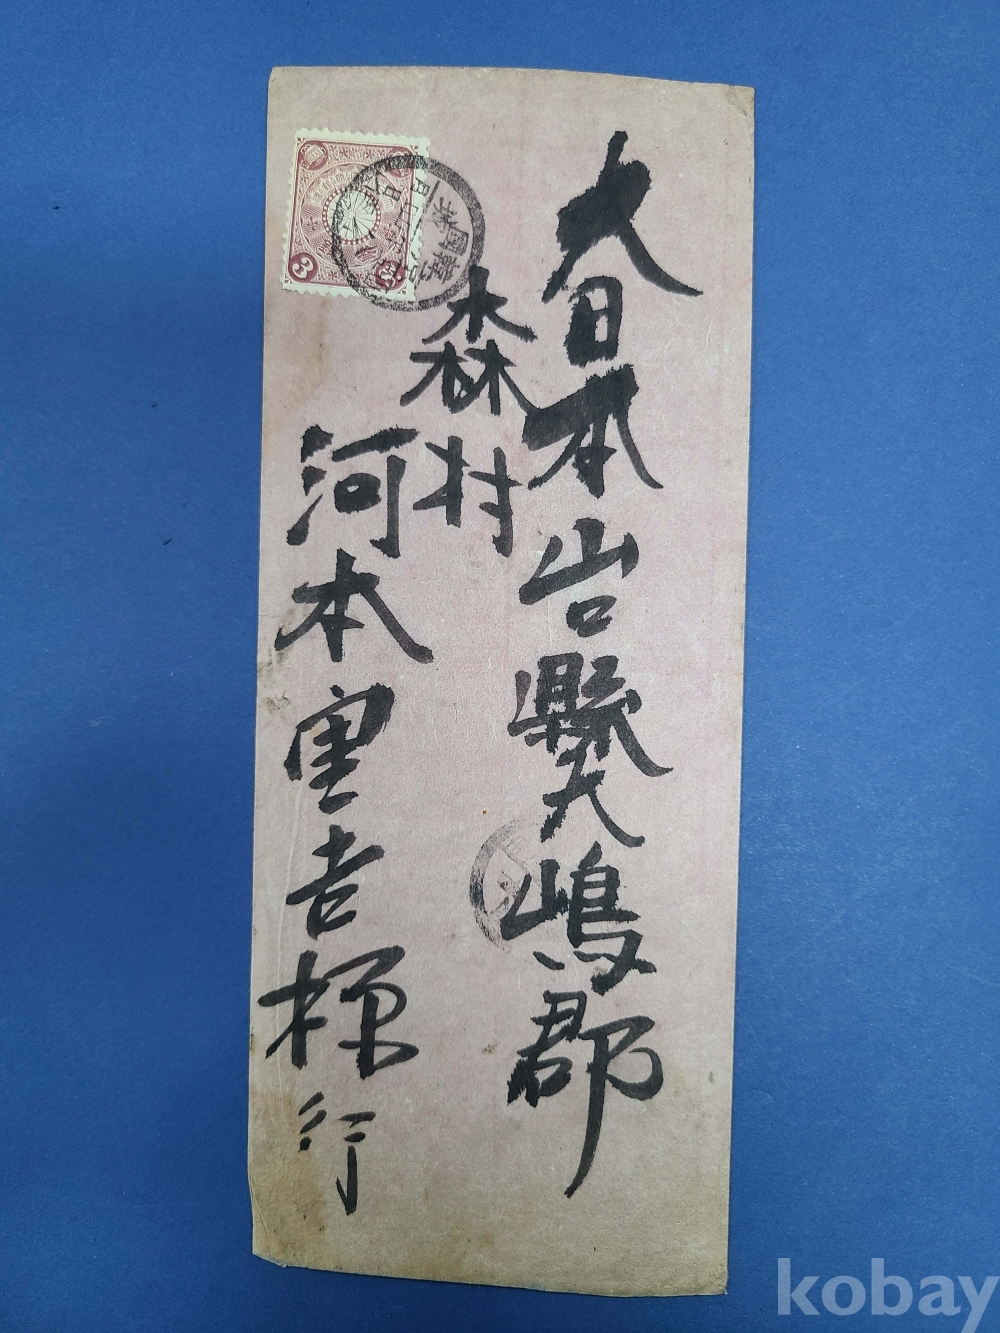 大日本山口縣大嶋郡
森村
河本里吉様行
3
韓國
kobay